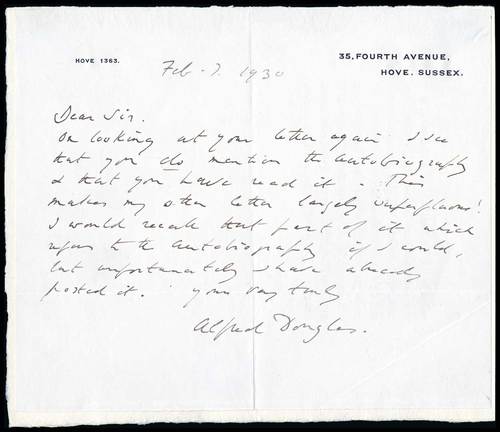 HOVE 1363.
35, FOURTH AVENUE,
HOVE. SUSSEX.
Feb. 7. 1930
Dear Sir.
On looking at your letter again I see
that you do mention the Autobiography
& that you have read it. This
makes my other letter largely superfluous!
I would recall that part of it which
refers to the Autobiography if I could,
but unfortunately I have already
posted it. Yours very truly
Alfred Douglas.